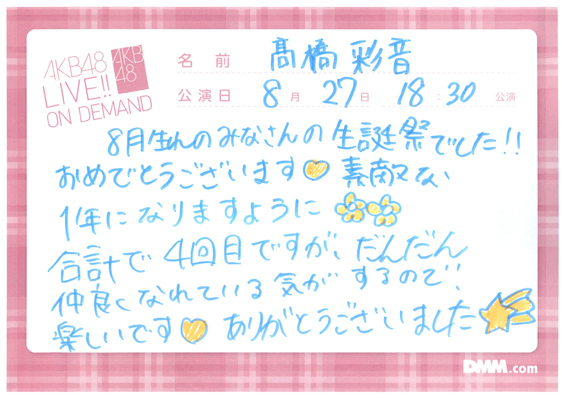 AKB48
LIVE!!
ON DEMAND
AKB
48
名前 髙橋 彩音
公演日 8月 27日 18:30 公演
8月生れのみなさんの生誕祭でした!!
おめでとうございます 素敵な
1年になりますように
合計で 4回目ですが、だんだん
仲良くなれている気がするので、
楽しいです ありがとうございました
DMM.com